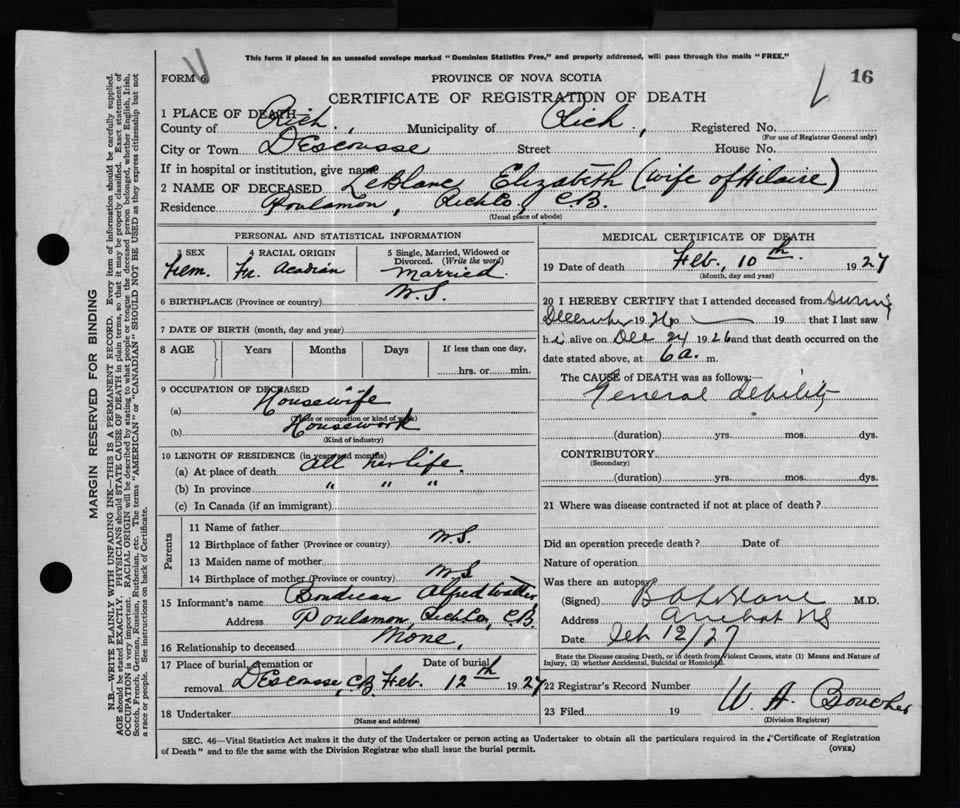 This form if placed in an unsealed envelope marked "Dominion Statistics Free," and properly addressed, will pass through the mails "FREE."
FORM 6
PROVINCE OF NOVA SCOTIA
16
CERTIFICATE OF REGISTRATION OF DEATH
1 PLACE OF DEATH
County of Rich., Municipality of Rich, Registered No.
(For use of Registrar General only)
City or Town DEscousse Street House No.
If in hospital or institution, give name
2 NAME OF DECEASED LeBlanc Elizabeth (wife of Hilaire)
Residence Poulamon, Rich Co, C.B.
(Usual place of abode)
PERSONAL AND STATISTICAL INFORMATION
3 SEX 4 RACIAL ORIGIN 5 Single, Married, Widowed or Divorced. (Write the word)
Fem. Fr. Acadian Married.
6 BIRTHPLACE (Province or country) N.S.
7 DATE OF BIRTH (month, day and year)
8 AGE Years Months Days If less than one day,
hrs. or min.
9 OCCUPATION OF DECEASED
(a) Housewife
(Trade or occupation or kind of work)
(b) Housework
(Kind of industry)
10 LENGTH OF RESIDENCE (in years and months)
(a) At place of death all her life.
(b) In province " " "
(c) In Canada (if an immigrant)
Parents
11 Name of father
12 Birthplace of father (Province or country) N.S.
13 Maiden name of mother
14 Birthplace of mother (Province or country) N.S.
15 Informant's name Boudreau Alfred Walter
Address Poulamon, Rich Co, C.B.
16 Relationship to deceased None,
17 Place of burial, cremation or Date of burial
removal DEscousse, CB Feb. 12th 1927
18 Undertaker
(Name and address)
MEDICAL CERTIFICATE OF DEATH
19 Date of death Feb., 10th. 1927
(Month, day and year)
20 I HEREBY CERTIFY that I attended deceased from During
December 1926 to 19 that I last saw
h alive on Dec 24 1926 and that death occurred on the
date stated above, at 6 a. m.
The CAUSE of DEATH was as follows:—
General debility
(duration) yrs. mos. dys.
CONTRIBUTORY
(Secondary)
(duration) yrs. mos. dys.
21 Where was disease contracted if not at place of death?
Did an operation precede death? Date of
Nature of operation
Was there an autopsy?
(Signed) M.D.
Address Arichat NS
Date Feb 12/27
State the Disease causing Death, or in death from Violent Causes, state (1) Means and Nature of
Injury, (2) whether Accidental, Suicidal or Homicidal.
22 Registrar's Record Number
23 Filed 19 W. A. Boucher
(Division Registrar)
SEC. 46—Vital Statistics Act makes it the duty of the Undertaker or person acting as Undertaker to obtain all the particulars required in the "Certificate of Registration
of Death" and to file the same with the Division Registrar who shall issue the burial permit.
(OVER)
MARGIN RESERVED FOR BINDING
N.B.—WRITE PLAINLY WITH UNFADING INK—THIS IS A PERMANENT RECORD. Every item of information should be carefully supplied.
AGE should be stated EXACTLY. PHYSICIANS should STATE CAUSE OF DEATH in plain terms, so that it may be properly classified. Exact statement of
OCCUPATION is very important. RACIAL ORIGIN will be described by stating to what people or tongue the deceased person belonged, whether English, Irish,
Scotch, French, German, Russian, Ruthenian, etc. The terms "AMERICAN" or "CANADIAN" SHOULD NOT BE USED as they express citizenship but not
a race or people. See instructions on back of Certificate.